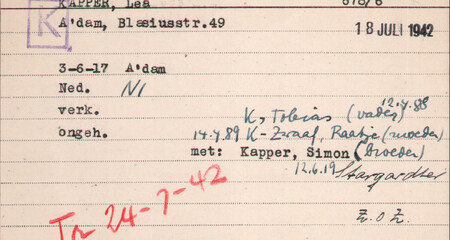 KAPPER, Lea 678/6
K A'dam, Blæsiusstr.49 18 JULI 1942
3-6-17 A'dam
Ned. NI
verk. K, Tobias (vader) 12.4.88
ongeh. 14.4.89 K-Zwaaf, Raatje (moeder)
met: Kapper, Simon (broeder)
12.6.19
Z.O.Z.
Tr 24-7-42